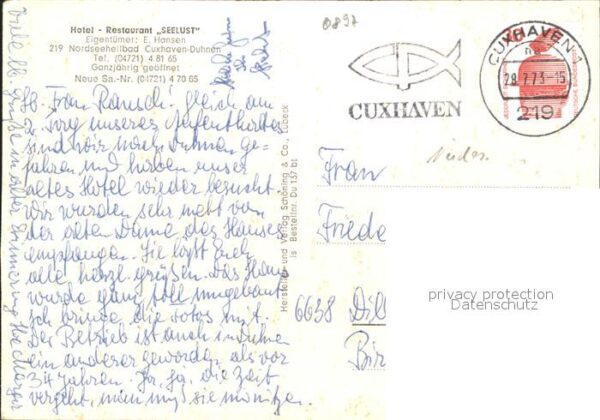 Hotel - Restaurant „SEELUST"
Eigentümer: E. Hansen
219 Nordseeheilbad Cuxhaven-Duhnen
Tel. (04721) 4 81 65
Ganzjährig geöffnet
Neue Sa.-Nr. (04721) 4 70 65
lb. Frau Rausch! Gleich am
2. Tag unseres Aufenthaltes
sind wir nach Duhnen ge-
fahren und haben unser
altes Hotel wieder besucht.
Wir wurden sehr nett von
der alten Dame des Hauses
empfangen. Sie läßt Euch
alle herzl. grüßen. Das Haus
wurde ganz toll umgebaut
ich bringe die Fotos mit.
Der Betrieb ist auch in Duhnen
ein anderer geworden als vor
34 Jahren. Ja, ja, die Zeit
vergeht, man muß sie nützen.
Viele lb. Grüße in alter Erinnerung
Hersteller und Verlag Schöning & Co., Lübeck
Bestellnr. Du 157 bt
0897
CUXHAVEN
CUXHAVEN 1
28.7.73-15
219
DEUTSCHE BUNDESPOST
Frau
Friede
6638 Dil
Bir
privacy protection
Datenschutz